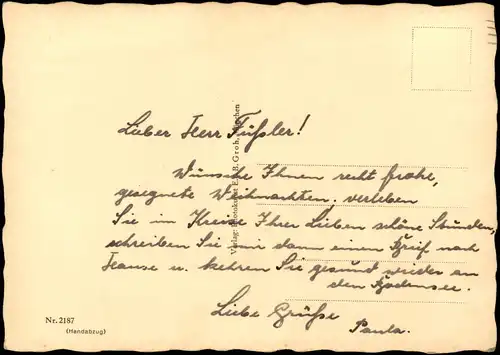 Lieber Herr Füßler!
Wünsche Ihnen recht frohe,
gesegnete Weihnachten. verleben
Sie im Kreise Ihrer Lieben schöne Stunden,
schreiben Sie mir dann einen Brief nach
Hause u. kehren Sie gesund wieder an
den Bodensee.
Liebe Grüße
Paula.
Verlag: E. B. Groh,
Nr. 2187
(Handabzug)